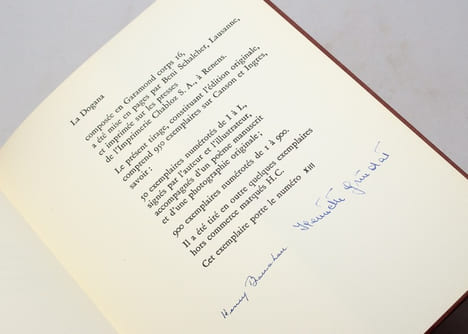 La Dogana
composée en Garamond corps 16,
a été mise en pages par Beni Schalcher, Lausanne,
et imprimée sur les presses
de l'Imprimerie Chabloz S. A., à Renens.
Le présent tirage, constituant l'édition originale,
comprend 950 exemplaires sur Canson et Ingres,
savoir :
50 exemplaires numérotés de I à L,
signés par l'auteur et l'illustrateur,
accompagnés d'un poème manuscrit
et d'une photographie originale ;
900 exemplaires numérotés de 1 à 900.
Il a été tiré en outre quelques exemplaires
hors commerce marqués H.C.
Cet exemplaire porte le numéro XIII
Henry